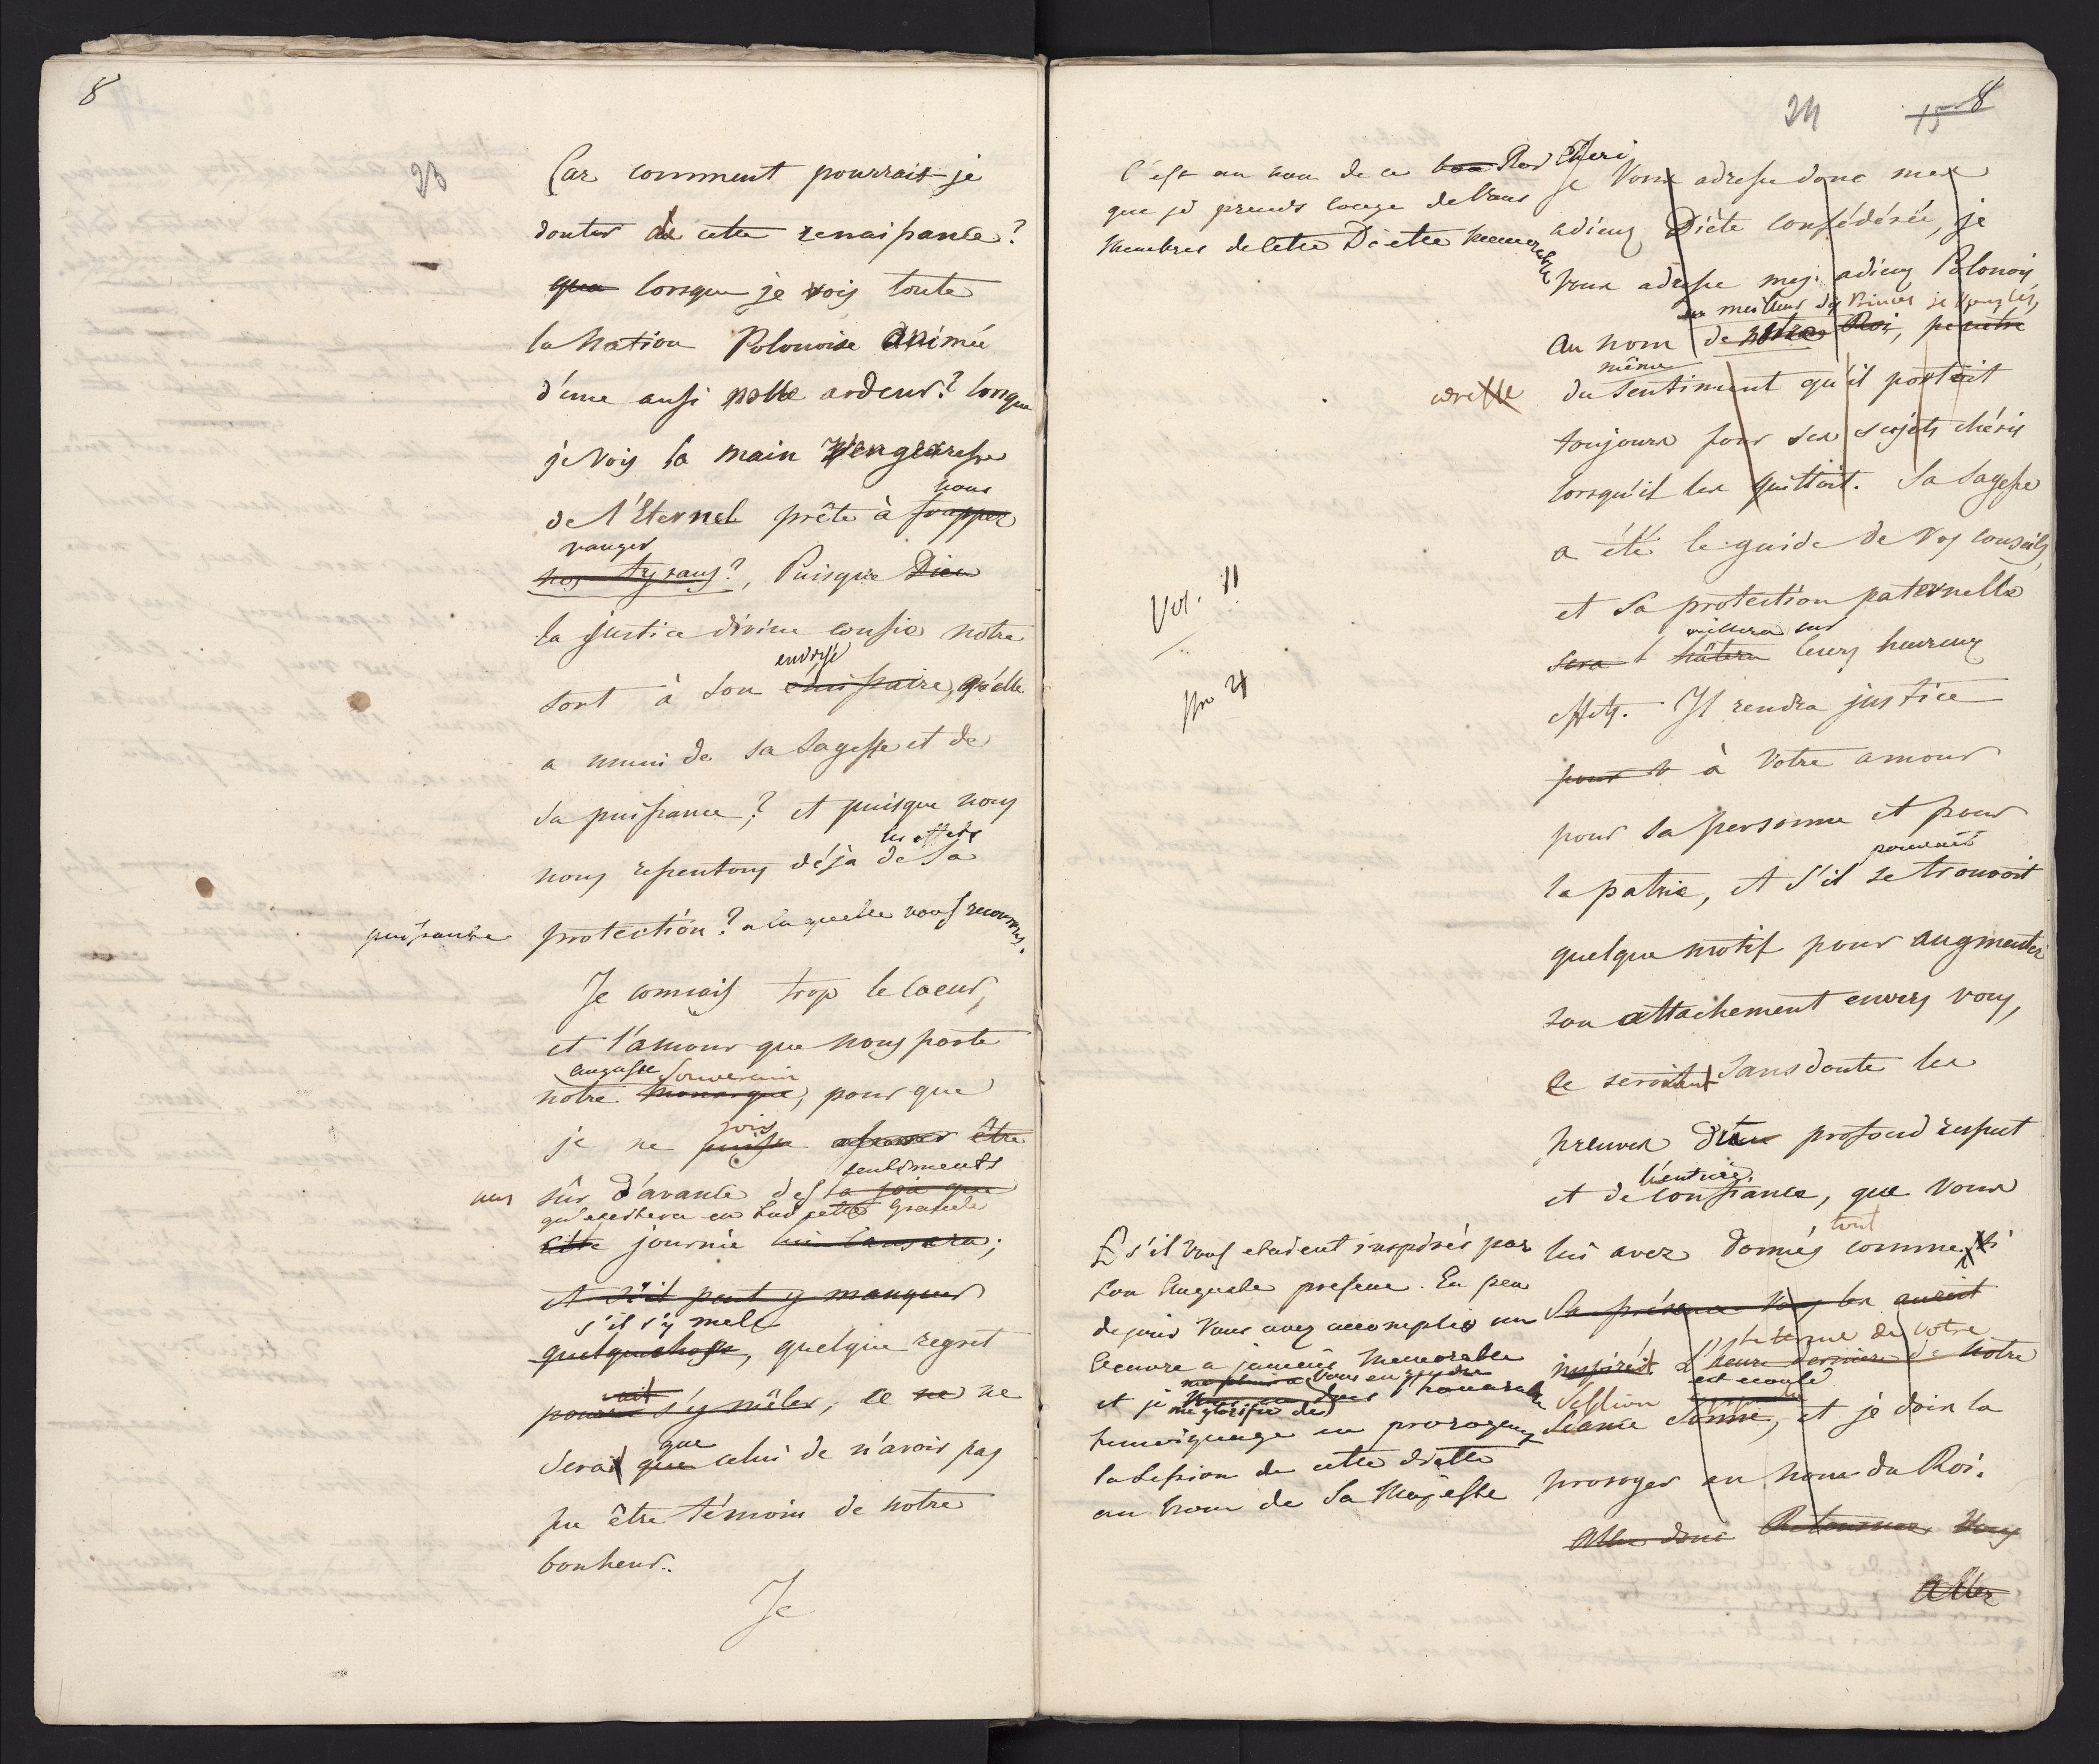 8
23
Car comment pourrait-je
douter de cette renaissance?
que lorsque je vois toute
la Nation Polonoise animée
d'une aussi noble ardeur? lorsque
je vois la main vengeresse
nous
de l'Eternel prête à frapper
vanger
nos tyrans?, Puisque Dieu
la justice divine confie notre
envoyé
sort à son émissaire, qu'elle
a muni de sa sagesse et de
sa puissance? et puisque nous
les effets
nous ressentons déjà de sa
puissante protection? a laquelle nous recourrons.
Je connais trop le coeur,
et l'amour que nous porte
auguste Souverain
notre monarque, pour que
je ne sois puisse assurer être
sentiments
sûr d'avance des la joie que
qu'excitera en lui cette grande
cette journée lui causera;
et s'il peut y manquer
s'il s'y mele
quelque chose, quelque regret
pourrait s'y mêler, ce ne
que
serait que celui de n'avoir pas
pu être témoin de notre
bonheur.
Je
24
15
8
C'est au nom de ce bon Roi Cheri
que je prends congé de Vous
Membres de cette Diette memorable
Je Vous adresse donc mes
adieux Diète confédérée, je
Vous adresse mes adieux Polonois
meilleur des Princes je
Au nom de notre Roi,
même
du sentiment qu'il portoit
toujours pour ses sujets chéris
lorsqu'il les quittoit. Sa sagesse
a été le guide de vos conseils,
et sa protection paternelle
veillera sur
sera hâtera leurs heureux
effets. Il rendra justice
pour v à Votre amour
pour sa personne et pour
pouvait
la patrie, et s'il se trouvoit
quelque motif pour augmenter
son attachement envers vous,
ce seroient sans doute les
preuves d'un profond respect
l'entière
et de confiance, que vous
tout
lui avez donnés comme si
Sa présence Vous les auroit
le terme de votre
inspirés. L'heure dernière de notre
est ecoulé
Session
Séance sonné, et je dois la
proroger au nom du Roi.
Allez donc Retournez Vous
Allez
Vol. 11
No 4
s'il Vous etoient inspirés par
son Auguste presence. En peu
de jours Vous avez accomplis une
Oeuvre a jamais Memorable
et je
me glorifie de l'honorable
temoignage en prorogeant
la Session de cette diette
au Nom de Sa Majeste